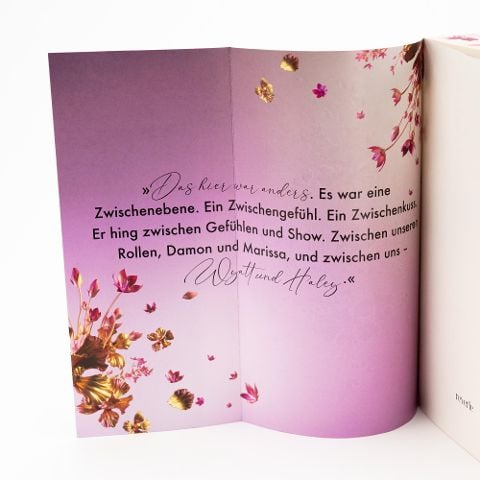 »Das hier war anders. Es war eine
Zwischenebene. Ein Zwischengefühl. Ein Zwischenkuss.
Er hing zwischen Gefühlen und Show. Zwischen unseren
Rollen, Damon und Marissa, und zwischen uns –
Wyatt und Haley.«